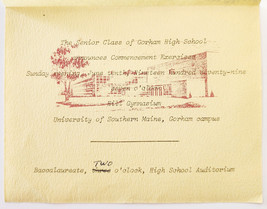 The Senior Class of Gorham High School
announces Commencement Exercises
Sunday evening, June tenth Nineteen Hundred seventy-nine
Seven o'clock
Hill Gymnasium
University of Southern Maine, Gorham campus
TWO
Baccalaureate, o'clock, High School Auditorium